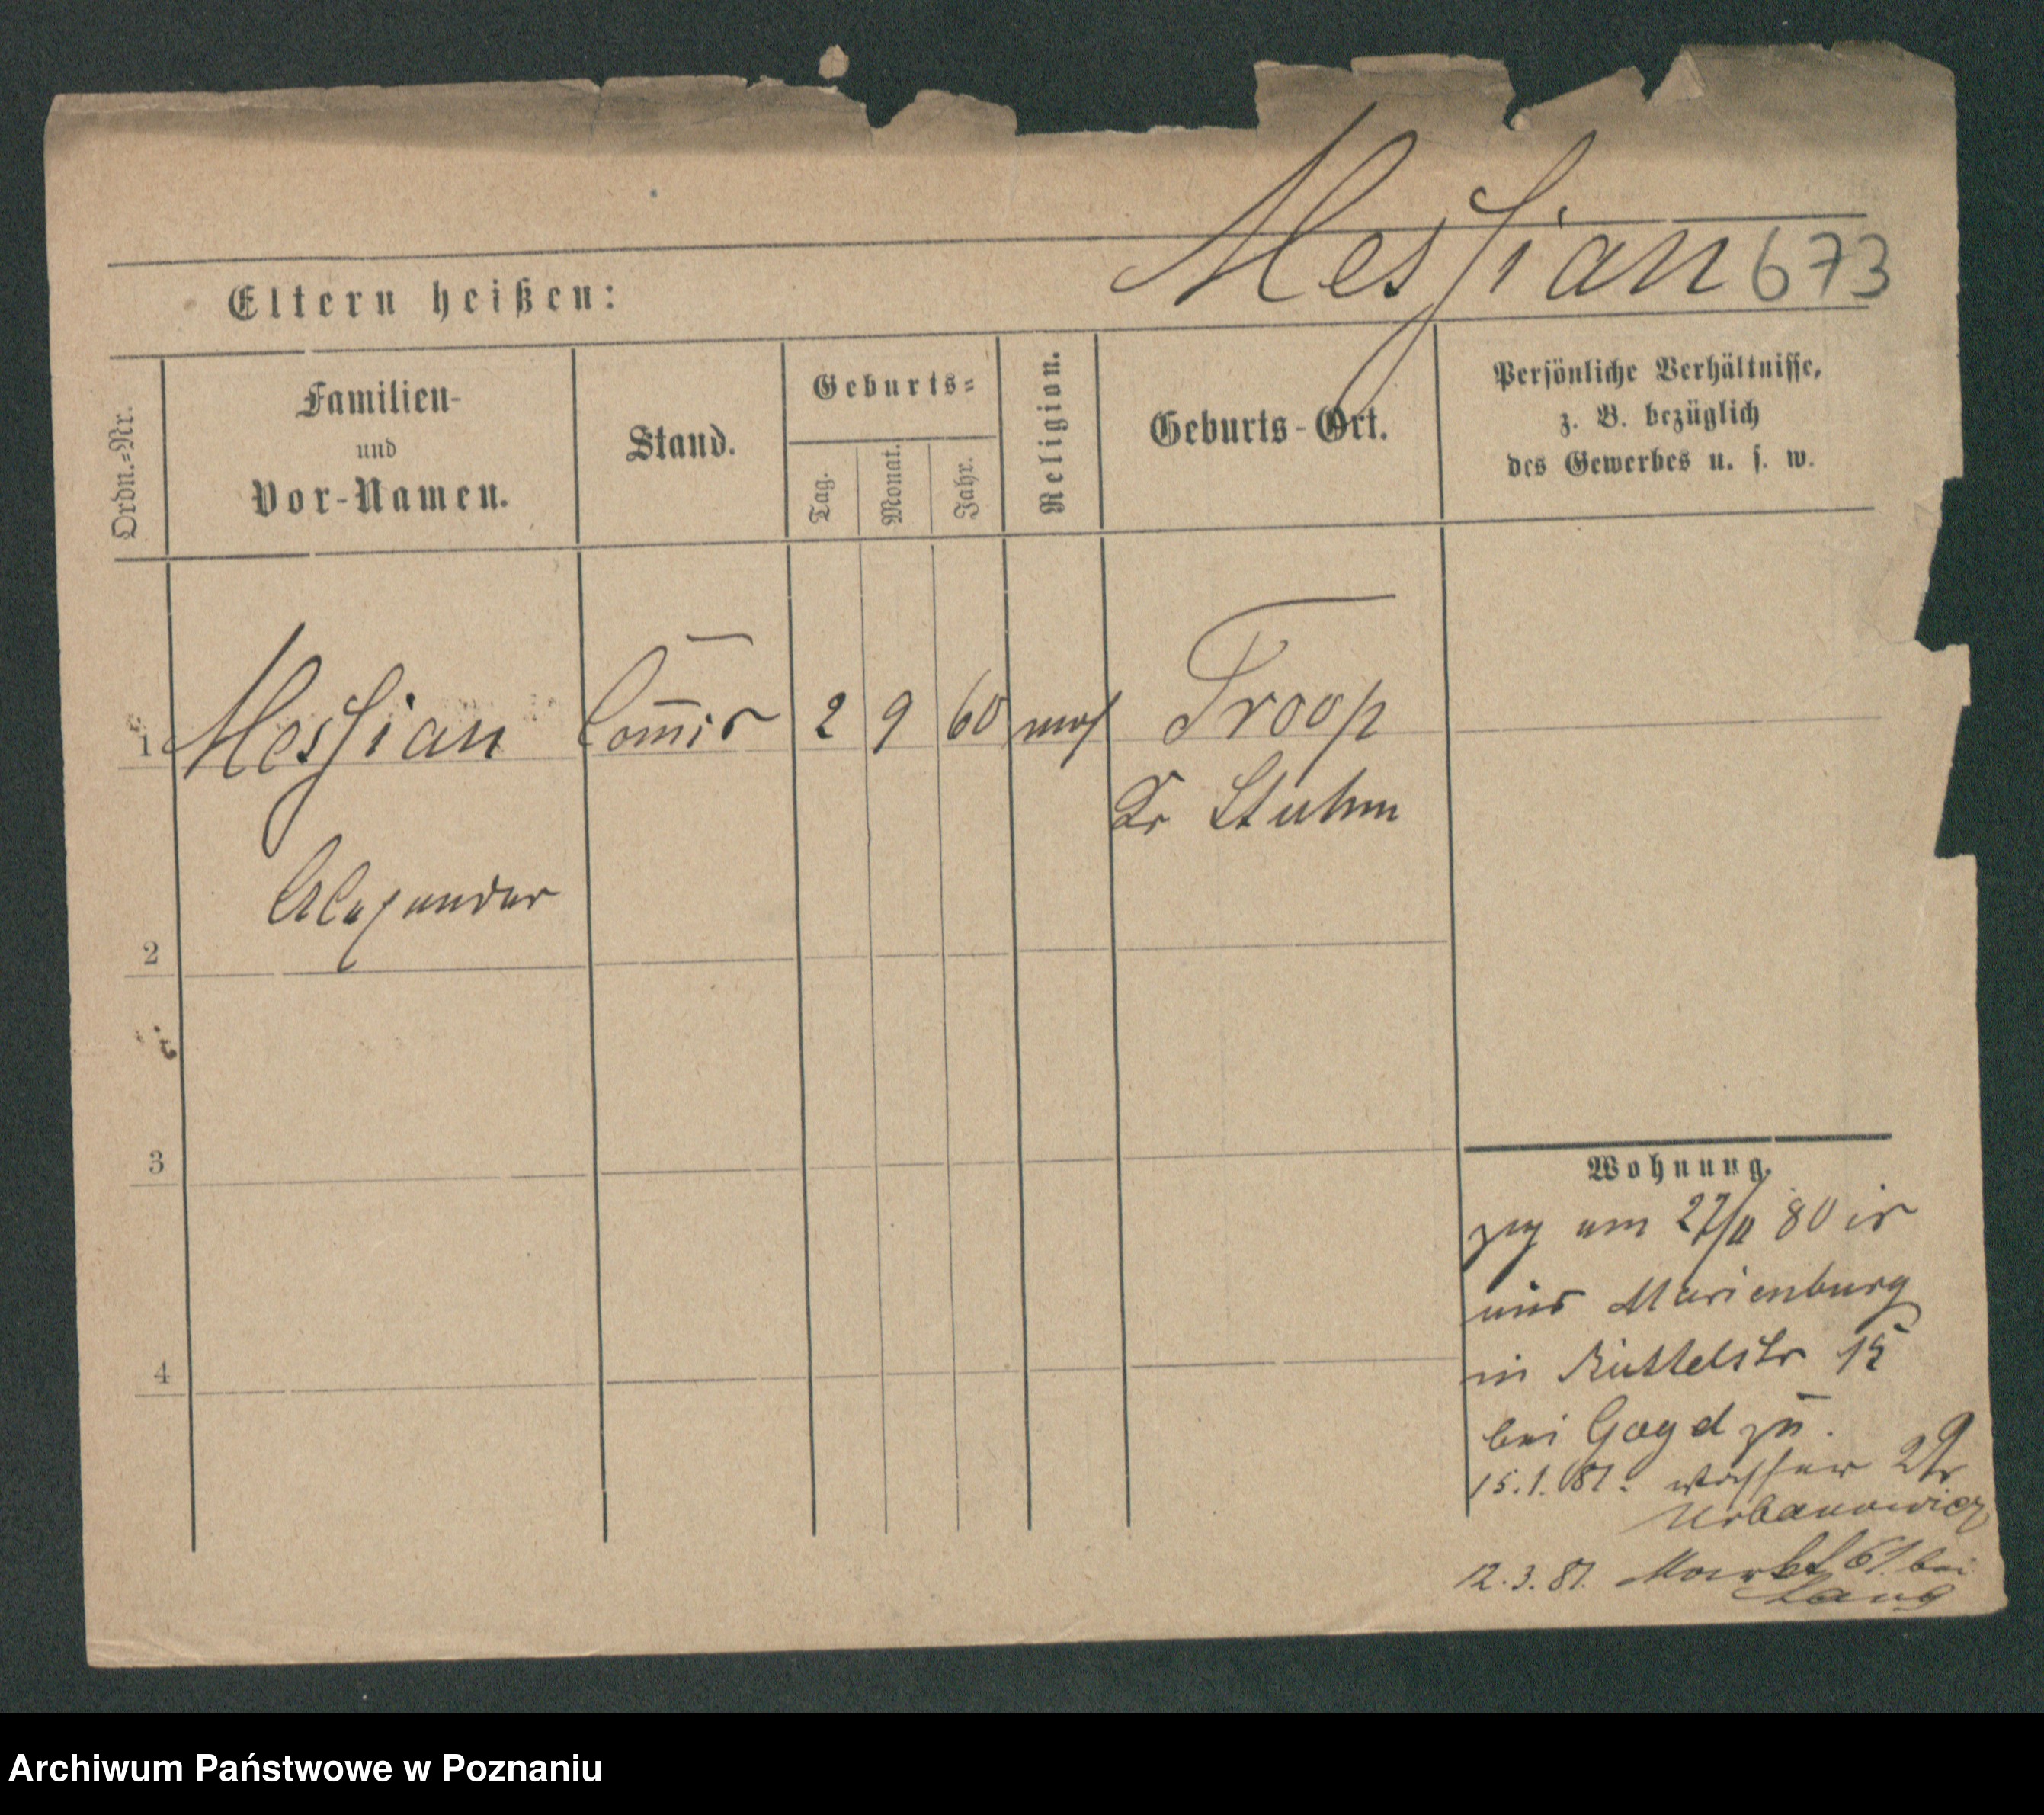 Messian 673
Eltern heißen:
Ordn.-Nr.
Familien-
und
Vor-Namen.
Stand.
Geburts-
Tag.
Monat.
Jahr.
Religion.
Geburts-Ort.
Persönliche Verhältnisse,
z. B. bezüglich
des Gewerbes u. s. w.
1 Messian Com̄is 2 9 60 mos Troop
Kr Stuhm
Alexander
2
3
4
Wohnung.
zog am 27/11 80 
aus Marienburg
in Büttelstr 15
bei Gogd zu.
15.1.81. Wasser
Urbanowicz
12.3.81. Markt 61. bei
Lang
Archiwum Państwowe w Poznaniu